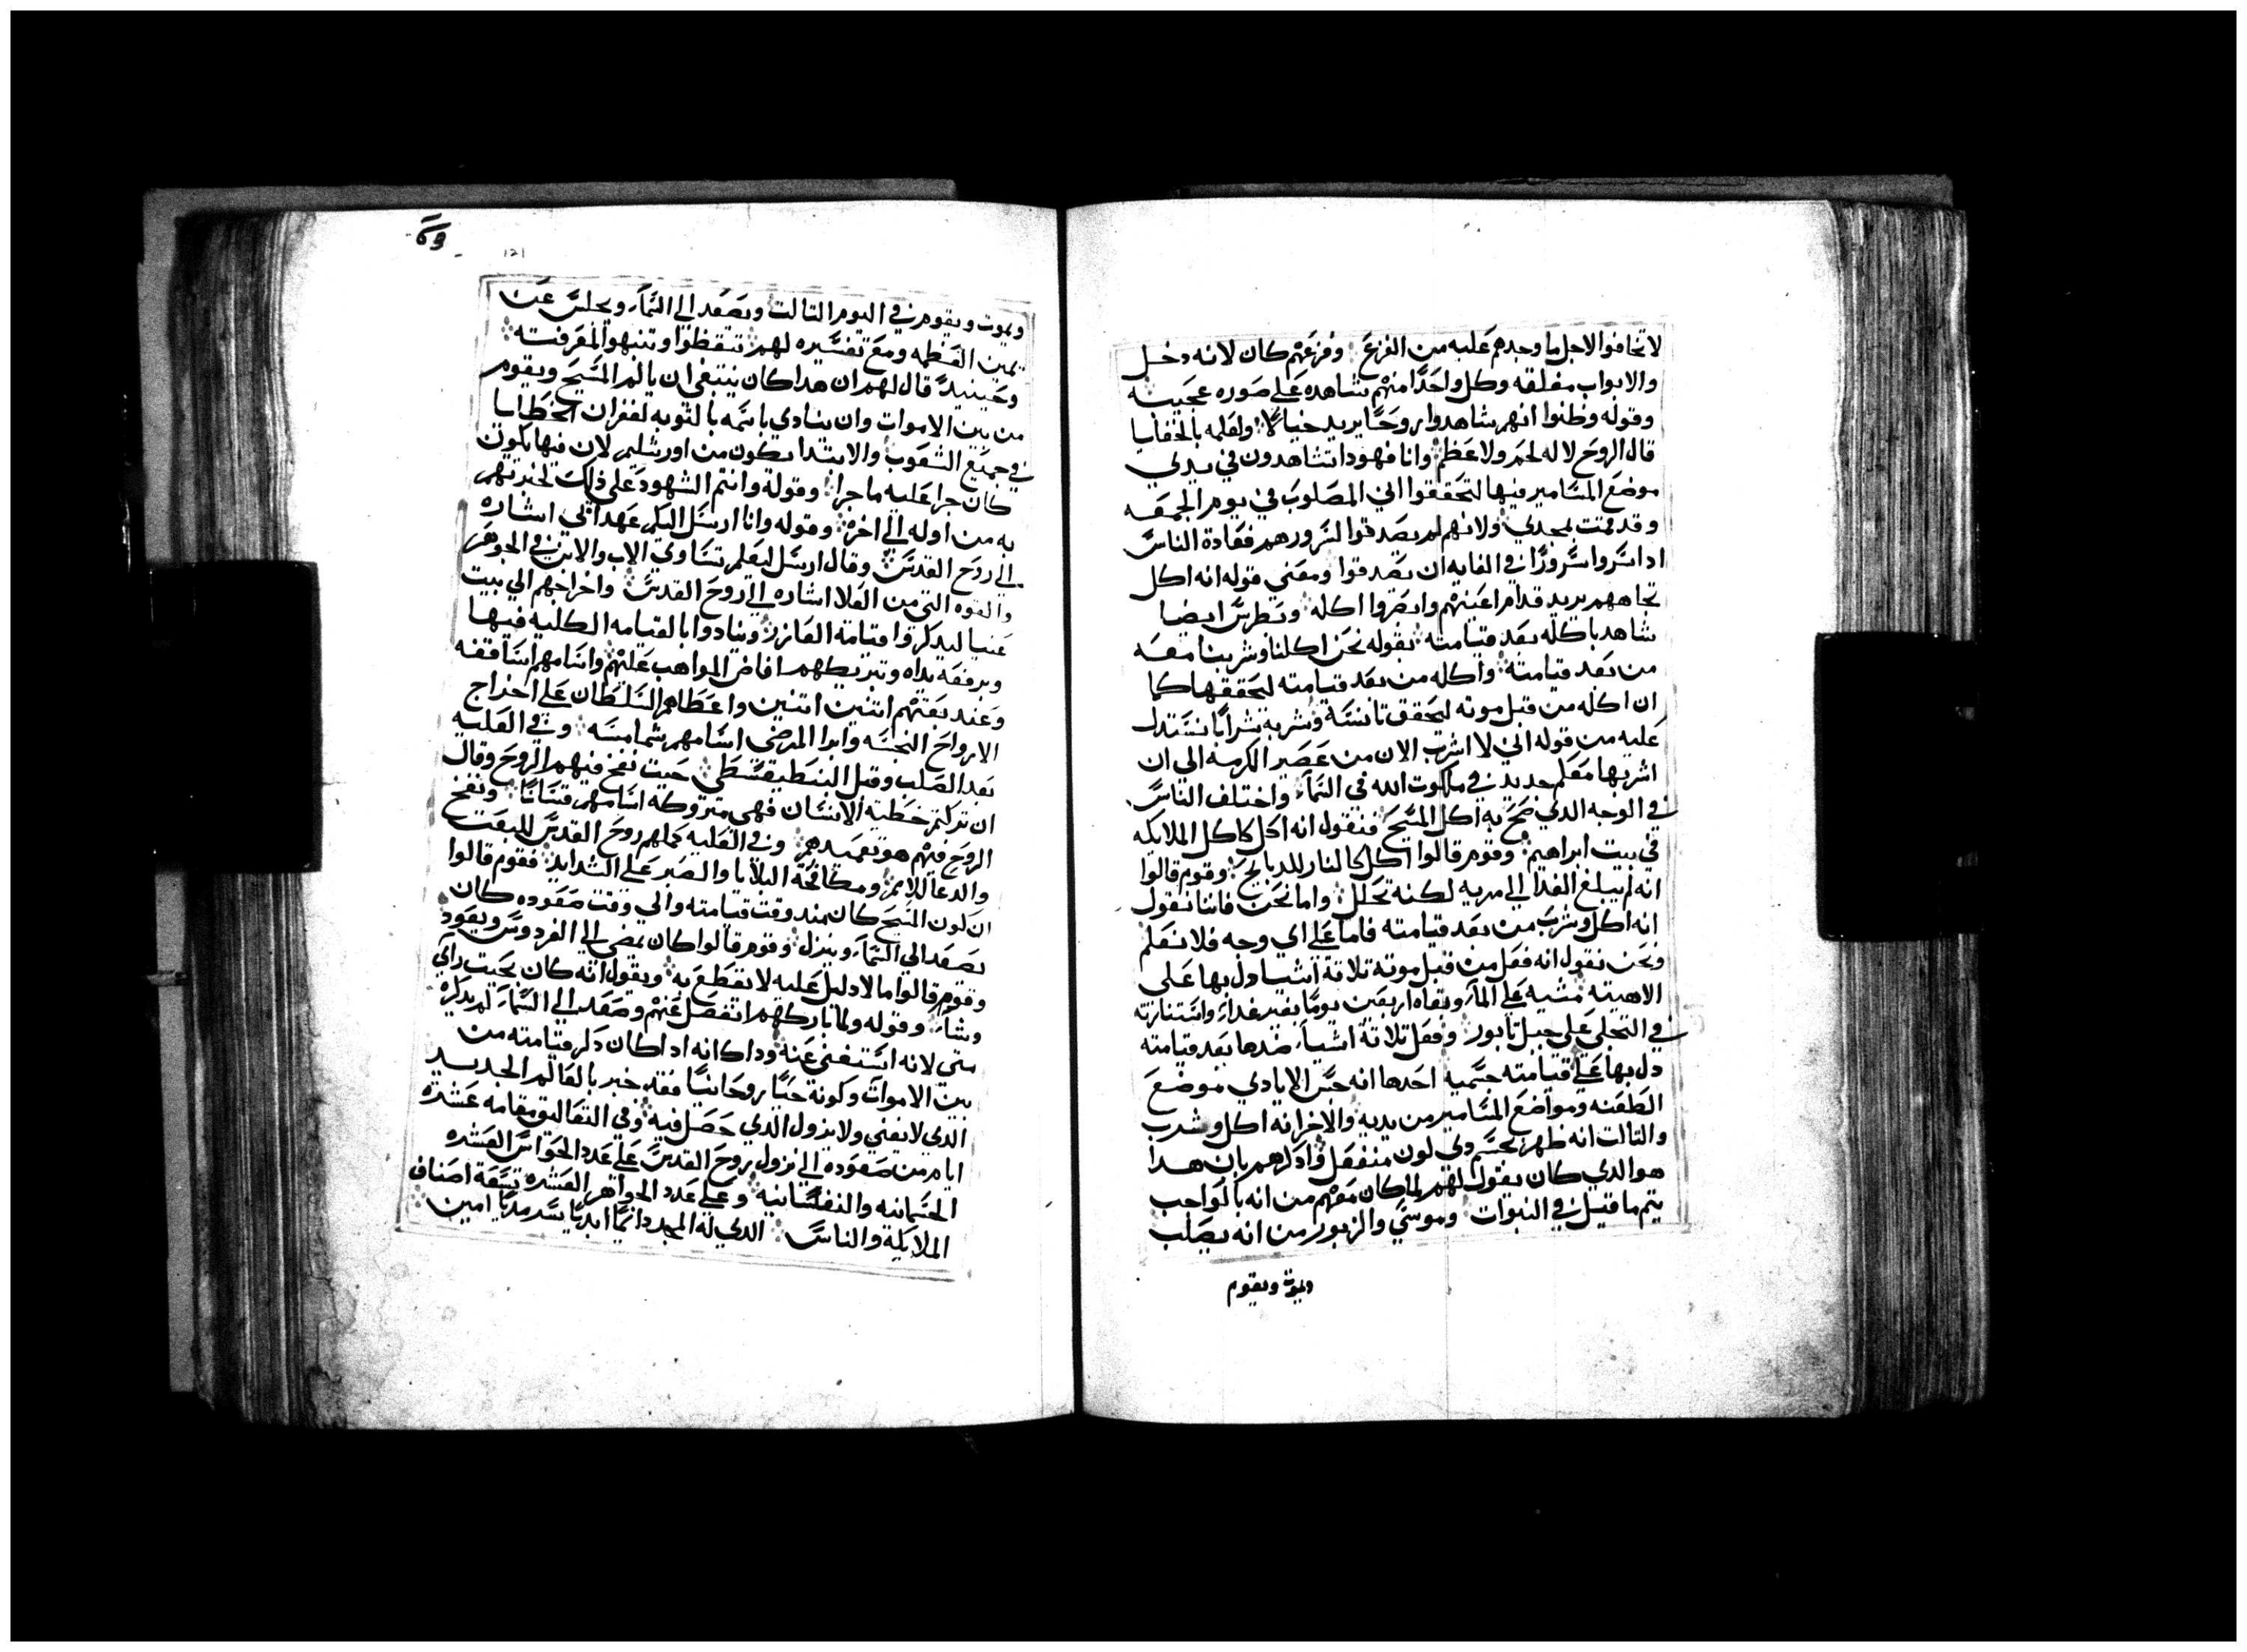 لا تخافوا لاجل ما وجدهم عليه من الفزع وفزعهم كان لانه دخل
والابواب مغلقه وكل واحدًا منهم شاهده على صوره عجيبه
وقوله وظنوا انهم شاهدوا روحًا يريد خيالًا ولعلمه بالخفايا
قال الروح لا له لحم ولا عظم وانا فهودا تشاهدون في يدي
موضع المسامير فيها لتحققوا اني المصلوب في يوم الجمعه
وقد قمت بمجدي ولانهم لم يصدقوا لسرورهم فعادة الناس
ادا سروا سرورًا في الغايه ان يصدقوا ومعنى قوله انه اكل
تجاههم يريد قدام اعينهم وابصروا اكله وبطرس ايضا
شاهد باكله بعد قيامته بقوله نحن اكلنا وشربنا معه
من بعد قيامته واكله من بعد قيامته لتحققها كما
ان اكله من قبل موته لتحقق تانسه وشربه شرابا نستدل
عليه من قوله اني لا اشرب الان من عصير الكرمه الي ان
اشربها معكم جديد في ملكوت الله في السماء واختلف الناس
في الوجه الدي صح به اكل المسيح فنقول انه اكل كاكل الملايكه
في بيت ابراهيم وقوم قالوا اكل كالنار للدبايح وقوم قالوا
انه لم يبلغ الغدا الى مريه لكنه تحلل واما نحن فاننا نقول
انه اكل وشرب من بعد قيامته فاما على اي وجه فلا نعلم
ونحن نقول انه فعل من قبل موته تلاتة اشيا دل بها على
الاهيته مشيه على الماء وبقاه اربعين يومًا بغير غداء واستنارته
في التجلي على جبل تابور وفعل تلاتة اشياء ضدها بعد قيامته
دل بها على قيامته جسميه احدها انه جس الايادي موضع
الطعنه ومواضع المسامير من يديه والاخر انه اكل وشرب
والتالت انه ظهر بجسم دي لون منفعل وادكرهم بان هدا
هو الدي كان يقول لهم لما كان معهم من انه بالواجب
يتم ما قيل في النبوات وموسى والزبور من انه يصلب
ويموت ويقوم
121
ويموت ويقوم في اليوم التالت ويصعد الى السماء ويجلس عن
يمين العظمه ومع تفسيره لهم تيقظوا وتنبهوا لمعرفته
وحينيد قال لهم ان هدا كان ينبغي ان يالم المسيح ويقوم
من بين الاموات وان ينادي باسمه بالتوبه لغفران الخطايا
في جميع الشعوب والابتدا يكون من اورشليم لان فيها يكون
كان جرا عليه ما جرا وقوله وانتم الشهود على ذلك لخبرتهم
به من اوله الى اخره وقوله وانا ارسل اليكم عهد ابي اشاره
الى روح القدس وقال ارسل ليعلم تساوي الاب والابن في الجوهر
والقوه التي من العلا اشاره الى روح القدس واخراجهم الى بيت
عنيا ليدكروا قيامة العازر وينادوا بالقيامه الكليه فيها
وبرفعه يداه وتبريكهم افاض المواهب عليهم واسامهم اساقفه
وعند بعتهم اتنين اتنين واعطاهم السلطان على اخراج
الارواح النجسه وابرا المرضى اسامهم شمامسه وفي العليه
بعد الصلب وقبل البنطيقسطي حيت نفخ فيهم الروح وقال
ان تركتم خطية الانسان فهي متروكه اسامهم قسانًا ونفخ
الروح فيهم هو تعميدهم وفي العليه كملهم روح القدس للبعت
والدعا للامم ومكافحة البلايا والصبر على الشدايد فقوم قالوا
ان لون المسيح كان مند وقت قيامته والي وقت صعوده كان
يصعد الي السماء وينزل وقوم قالوا كان يمضى الى الفردوس ويعود
وقوم قالوا ما لا دليل عليه لا نقطع به ونقول انه كان بحيت راي
وشاء وقوله ولما باركهم انفصل عنهم وصعد الى السماء لم يدكره
متى لانه استغنى عنه وداك انه ادا كان دكر قيامته من
بين الاموات وكونه حيًا روحانيًا فقد خبر بالعالم الجديد
الدي لا يفنى ولا يزول الدي حصل فيه وفي التعاليق مقامه عشره
ايام من صعوده الى نزول روح القدس على عدد الحواس العشره
الجسمانيه والنفسانيه وعلى عدد الجواهر العشره تسعة اصناف
الملايكة والناس الدي له المجد دايمًا ابديا سرمديًا امين